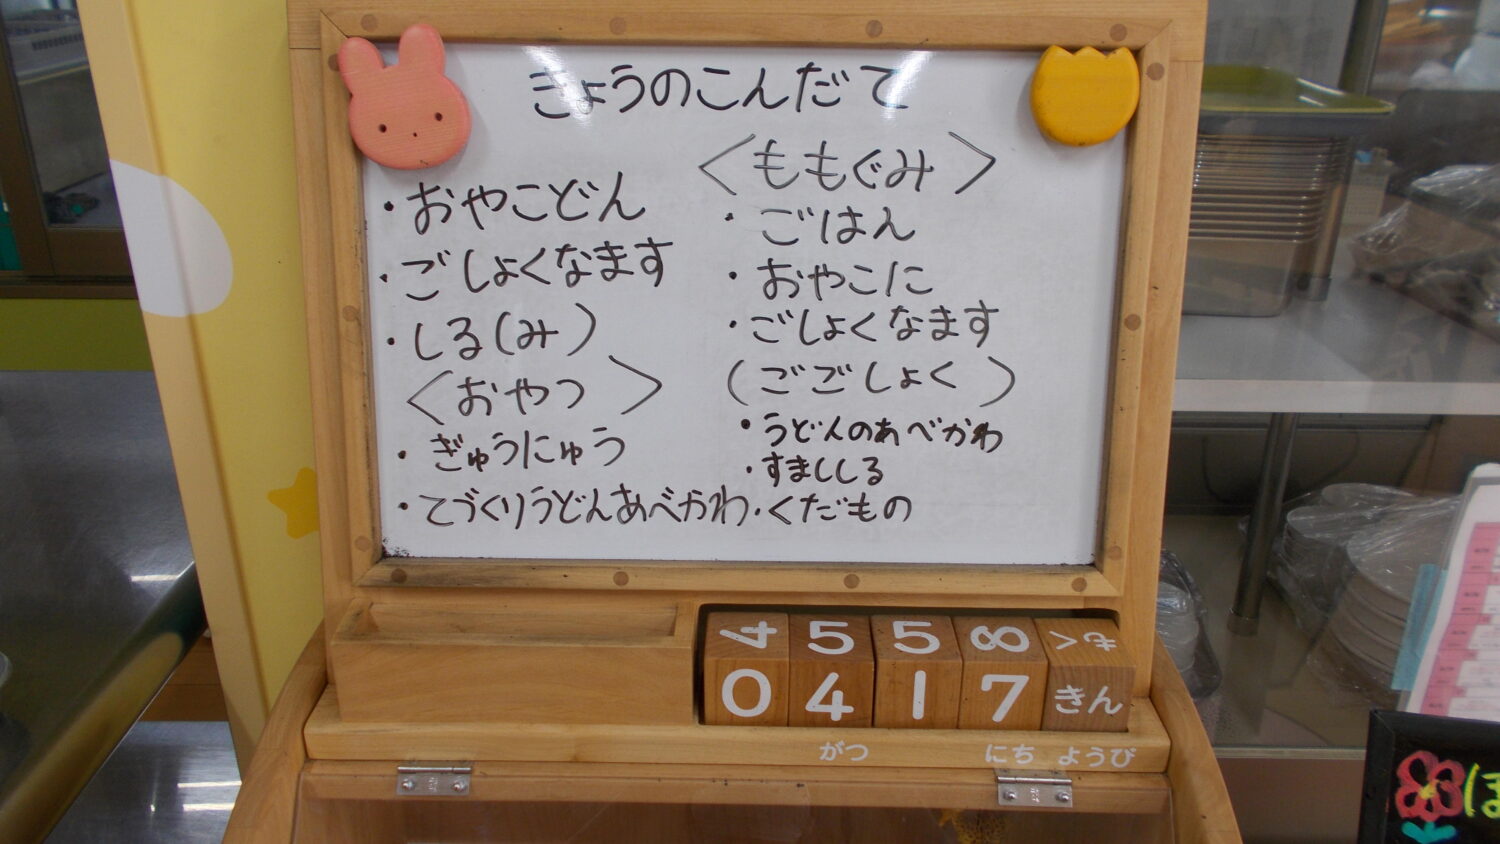 きょうのこんだて
・おやこどん
・ごしょくなます
・しる(み)
<おやつ>
・ぎゅうにゅう
・てづくりうどんあべかわ・くだもの
<ももぐみ>
・ごはん
・おやこに
・ごしょくなます
(ごごしょく)
・うどんのあべかわ
・すまししる
4 5 5 8
0 4 1 7 きん
がつ にち ようび